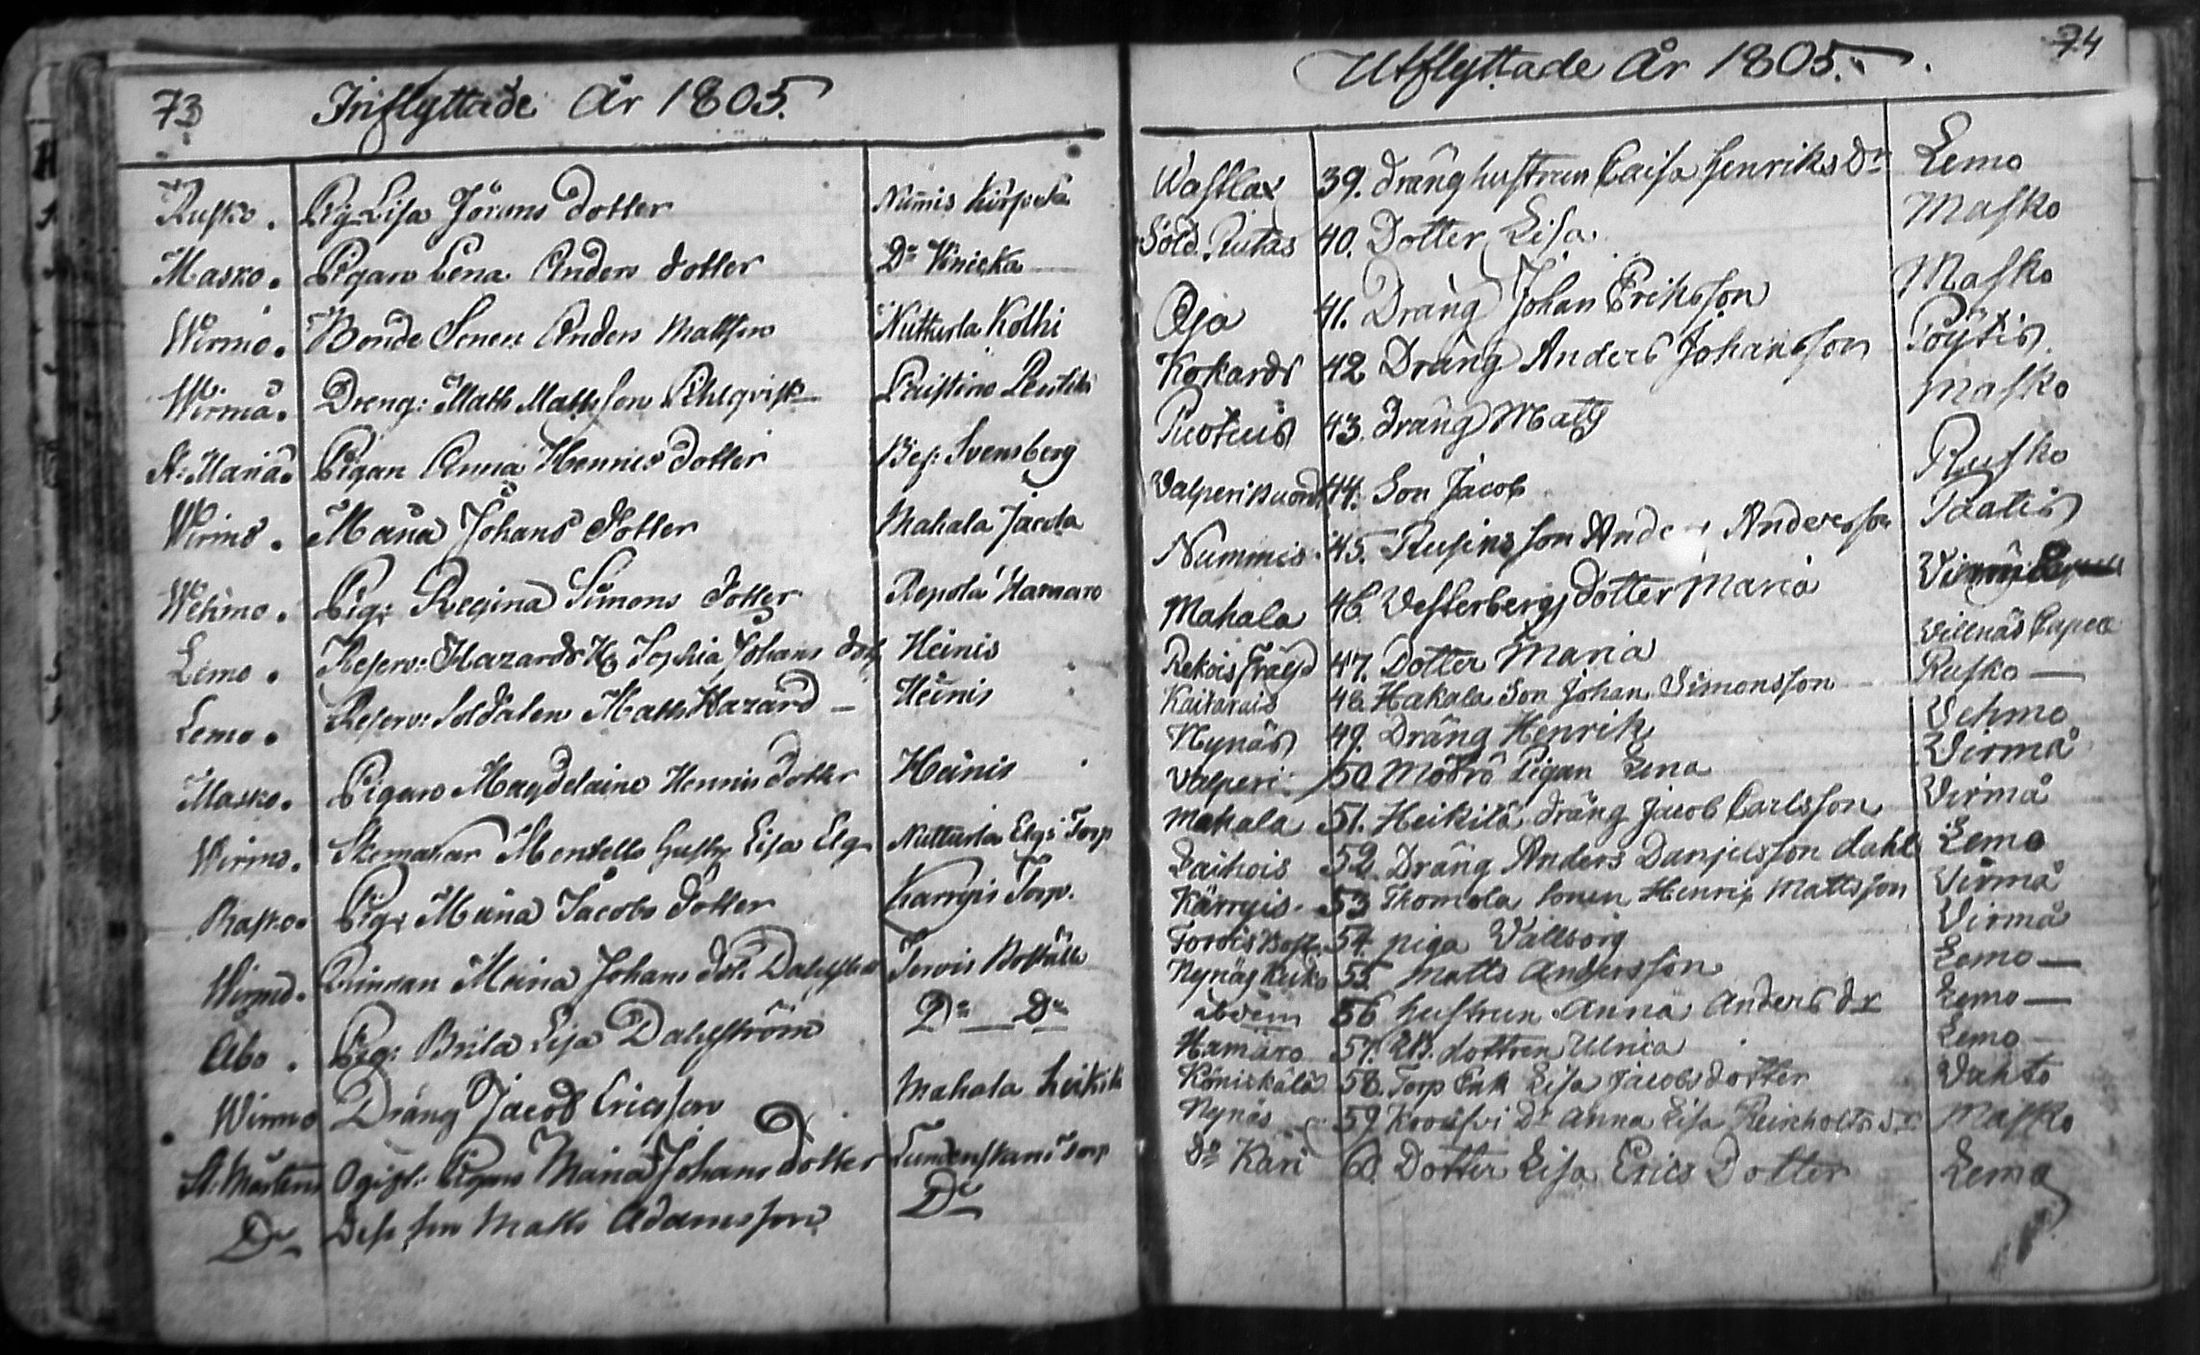 73
Inflyttade År 1805.
Rusko. Pig. Lisa Jörans dotter Nummis Kirpeka
Masko. Pigan Lena Anders dotter Do Knicka
Wirmo. Bonde Sonen Anders Mattsson Nutturla Kolhi
Wirmå. Dreng: Matts Mattsson Pehlqvist Pentti
St: Maria. Pigan Anna Hennics dotter Bes: Svensberg
Wirmo. Maria Johans dotter Mahala Jacola
Wehmo. Pig: Regina Simons dotter Repola Hamaro
Lemo. Reserv: Hazards H Sophia Johans dot Heinis
Lemo. Reserv: Soldaten Matts Hazard — Heinis
Masko. Pigan Magdelaine Hennics dotter Heinis
Wirmo. Lisa Elg Nutturla Elgs Torp
Rasko. Pig: Maria Jacobs dotter Karrgis Torp.
Wirmo. Maria Johans dot: Torois Boställe
Åbo. Pig: Brita Lisa Dahlström Do — Do
Wirmo Dräng Jacob Ericsson Mahala Heikilä
St. Mårtens Ogift: Pigan Maria Johans dotter Torp
Do Dess son Matts Adamsson Do
74
Utflyttade År 1805.
Waskax 39. dräng hustrun Caisa Henriks Dr Lemo
Sold. Rutas 40. Dotter Lisa Masko
Oja 41. Dräng Johan Eriksson Masko
Kokards 42 Dräng Anders Johansson Pöytis
Puotuis 43. dräng Matts Masko
Valperi 44. Son Jacob Rusko
Nummis 45. Rusins son Ande Andersson Paatis
Mahala 46. Vesterbergs dotter Maria
Rekois 47. Dotter Maria Villnäs Capell
Kaitarais 48. Hakala Son Johan Simonsson Rusko —
Nynäs 49. Dräng Henrik Vehmo
Valperi 50. Pigan Lena Virmå
Mahala 51. Heikilä dräng Jacob Carlsson Virmå
Laihois 52. Dräng Anders Danjelsson dahl Lemo
Kärrgis. 53 Thomola sonen Henrix Mattsson Virmå
Torois Bost. 54 piga Vallborg Virmå
Nynäs 55. Matts Andersson Lemo —
ibdem 56 hustrun Anna Anders dr Lemo —
Hamaro 57. dottren Ulrica Lemo —
Köniskälä 58. Torp Enk Lisa Jacobs dotter Vahto
Nynäs 59 Dr Anna Lisa Reinholts dr Masko
Do Kari 60. Dotter Lisa Erics Dotter Lemo